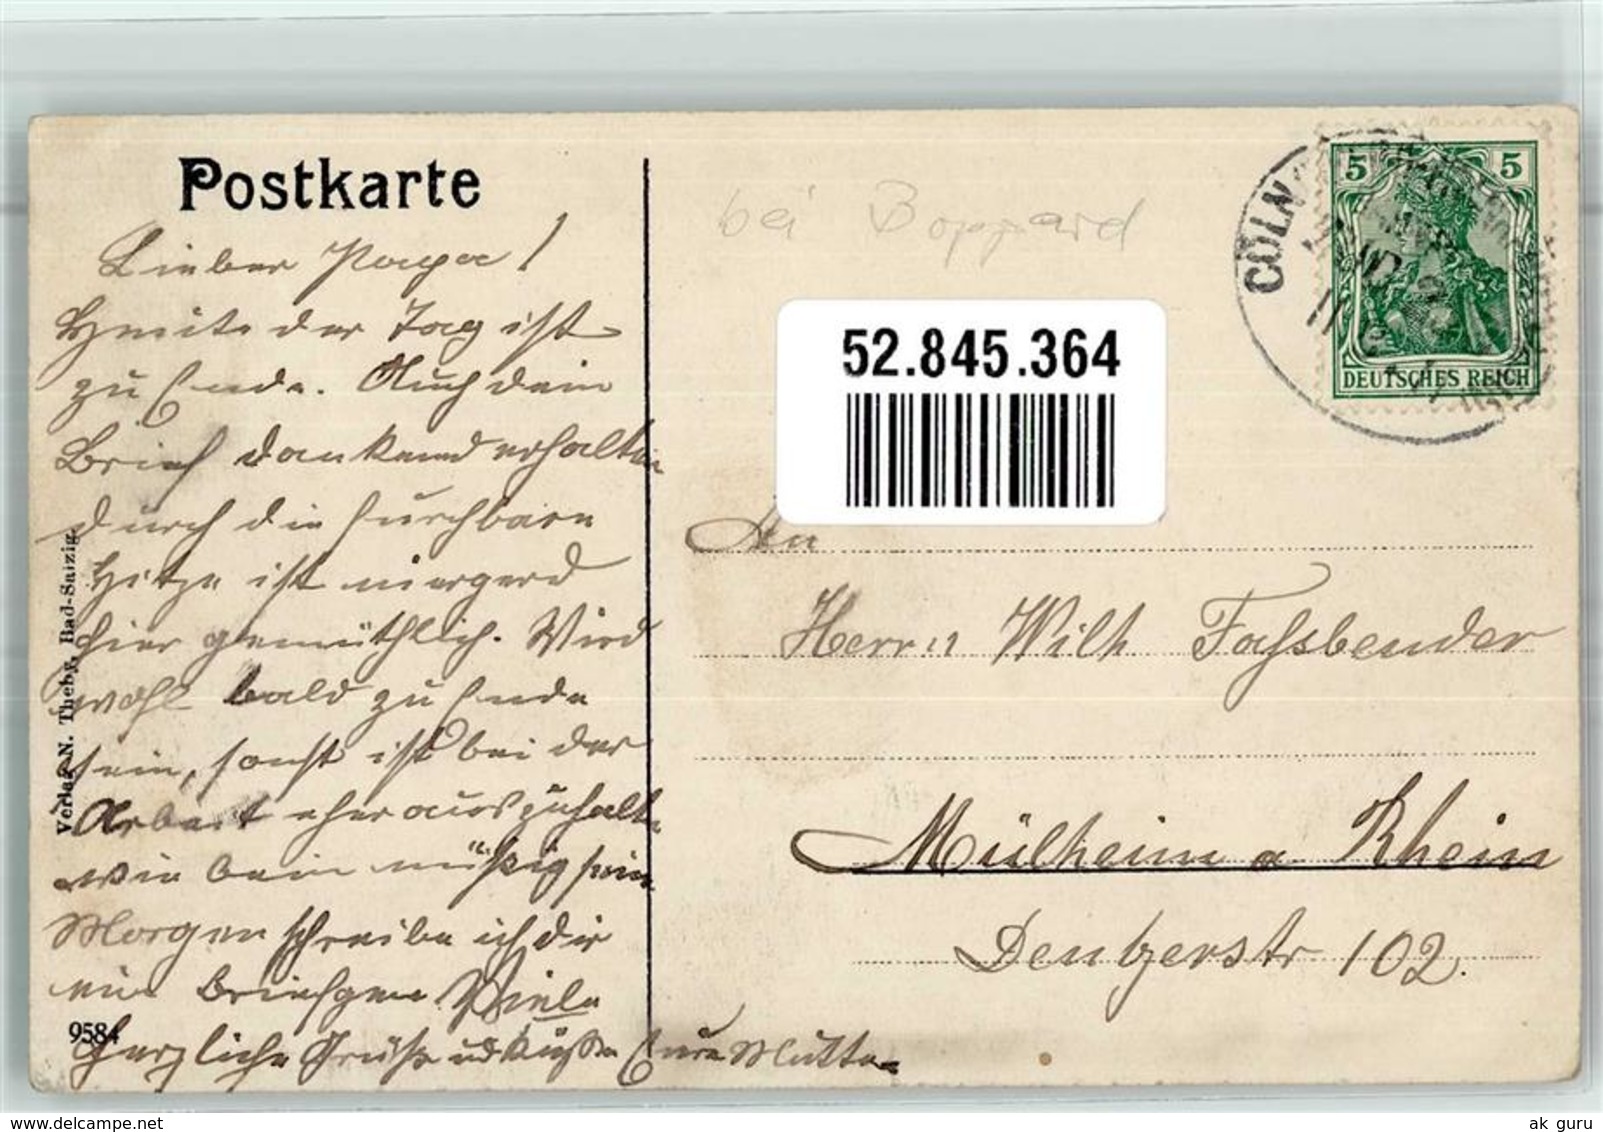 Postkarte
Lieber Papa!
Heute der Tag ist
zu Ende. Auch dein
Brief dankend erhalten
durch die furchbare
Hitze ist nirgend
hier gemüthlich. Wird
wohl bald zu Ende
sein, sonst ist bei der
Arbeit eher auszuhalten
wie beim müßig sein
Morgen schreibe ich dir
ein Briefgen Viele
herzliche Grüße und Küsse Eure Mutter
Verlag N. Theby, Bad-Salzig.
9584
bei Boppard
52.845.364
CÖLN
5 5
DEUTSCHES REICH
An
Herrn Wilh Fassbender
Mülheim a Rhein
Deutzerstr 102.
ak guru
www.delcampe.net